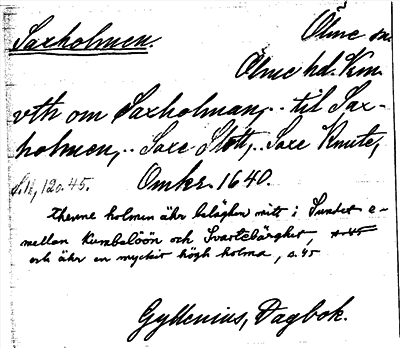 Saxholmen. Ölme sn.
Ölme hd. Krm.
vth om Saxholman,.. til Sax-
holmen,.. Saxe Slott,.. Saxe Knute,
s. 11, 120. 45. Omkr. 1640.
thenne holmen ähr belaghen mitt i Sundet e-
mellan Kumbelöön och Svartebärghet, s. 45
och ähr en myckit högh holma, s. 45
Gyllenius, Dagbok.